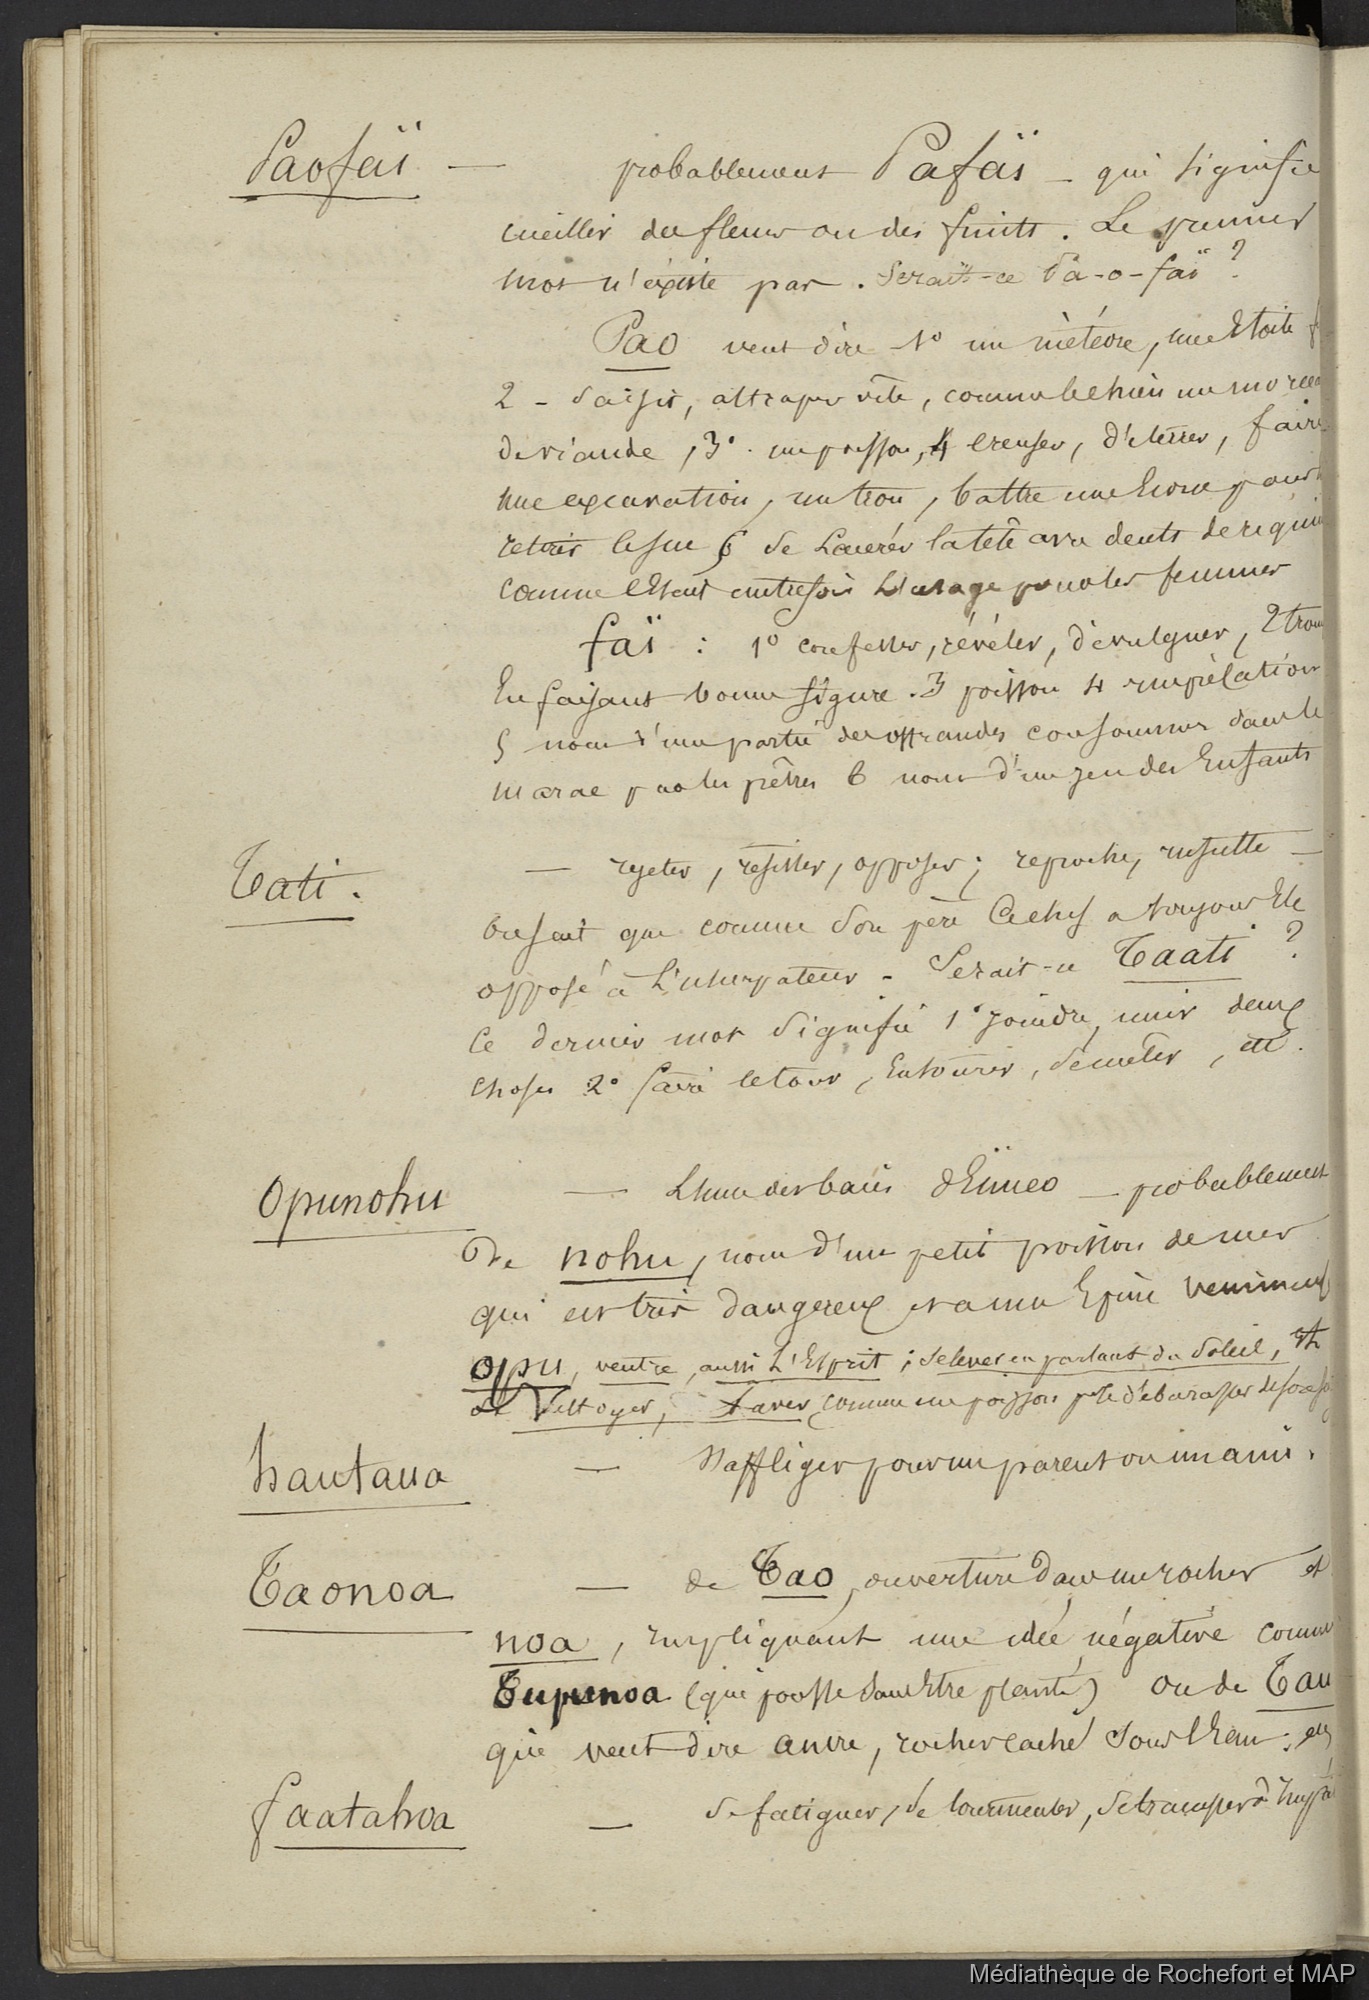 Paofaï — probablement Pafaï — qui signifie
cueillir des fleurs ou des fruits. Le premier
mot n'existe pas. Serait-ce Pa-o-faï ?
Pao veut dire 1° un météore, une Etoile f
2 - Saisir, attraper vite, comme le chien un morceau
de viande, 3°. un poisson, 4 creuser, déterrer, faire
une excavation, un trou, battre une
retirer le suc 5 se lacérer la tête avec dents de requin
comme c'était autrefois l'usage pour les femmes
faï : 1° confesser, révéler, divulguer, 2 trom
En faisant bonne figure. 3 poisson 4
5 nom d'une partie des offrandes consommées dans le
marae par les prêtres 6 nom d'un jeu des Enfants
Tati. — rejeter, résister, opposer ; reproche, insulte —
On sait que comme son père Ce chef a toujours Eté
opposé à L'usurpateur - Serait-ce Taati ?
Ce dernier mot signifie 1° joindre, unir deux
choses 2° faire le tour, Entourer, démêler, etc.
Opunohu — L'une des baies d'Eïmeo — probablement
De nohu, nom d'un petit poisson de mer
qui est très dangereux et a une Epine venimeuse
opu, ventre, aussi L'Esprit ; se lever en parlant du Soleil, et
de Nettoyer, Laver comme un poisson pr le débarasser de
hautaua — S'affliger pour un parent ou un ami.
Taonoa — de Tao, ouverture dans un rocher et
noa, impliquant une idée négative comme
Tupunoa (qui pousse sans Etre planté) ou de Tau
qui veut dire ancre, rocher caché sous l'Eau ;
faatahoa — Se fatiguer, se tourmenter, se
Médiathèque de Rochefort et MAP